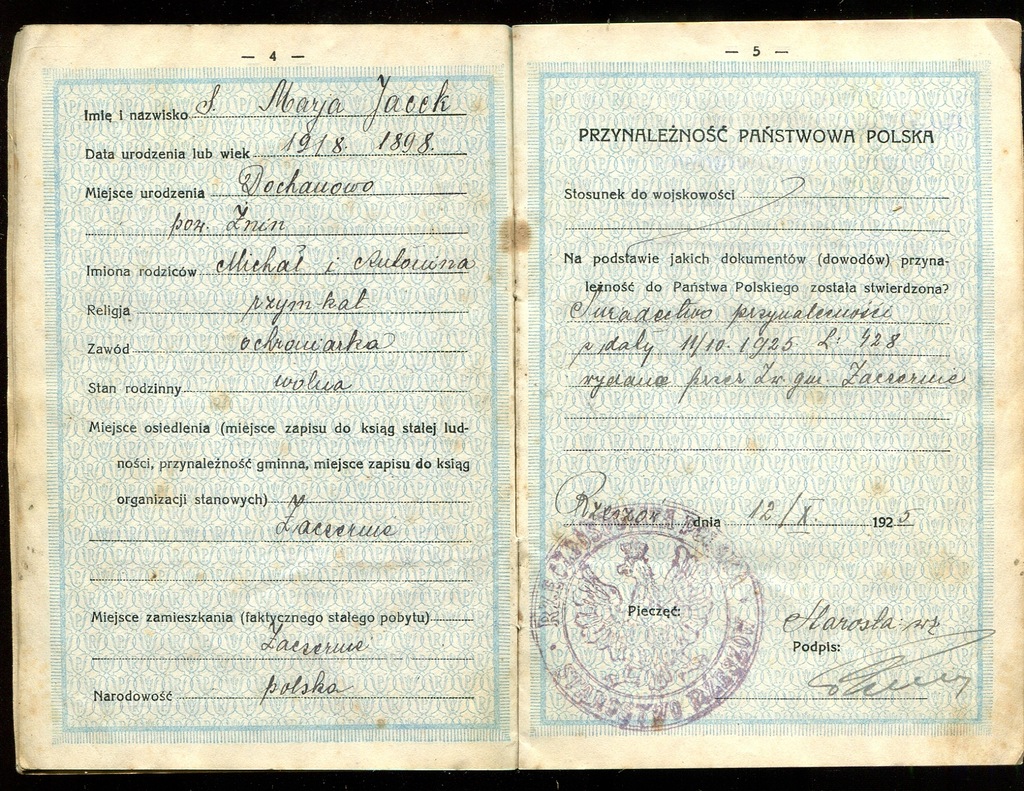 — 4 —
Imię i nazwisko S. Marja Jacek
Data urodzenia lub wiek 19/8. 1898.
Miejsce urodzenia Dochanowo
pow. Żnin
Imiona rodziców Michał i Antonina
Religja rzym kat
Zawód ochroniarka
Stan rodzinny wolna
Miejsce osiedlenia (miejsce zapisu do ksiąg stałej lud-
ności, przynależność gminna, miejsce zapisu do ksiąg
organizacji stanowych)
Zaczernie
Miejsce zamieszkania (faktycznego stałego pobytu)
Zaczernie
Narodowość polska
— 5 —
PRZYNALEŻNOŚĆ PAŃSTWOWA POLSKA
Stosunek do wojskowości
Na podstawie jakich dokumentów (dowodów) przyna-
leżność do Państwa Polskiego została stwierdzona?
Świadectwo przynależności
z daty 11/10. 1925 L: 428
wydane przez Zw. gm. Zaczernie
Rzeszów dnia 12/X. 1925
RZECZPOSPOLITA POLSKA
STAROSTWO RZESZÓW
Pieczęć:
Starosta
Podpis: